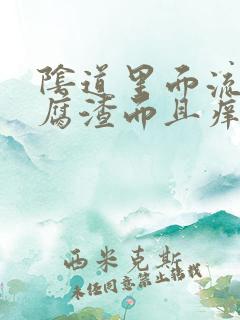 陰道里而流
腐渣而且痒
西米克斯
未经同意禁止转载